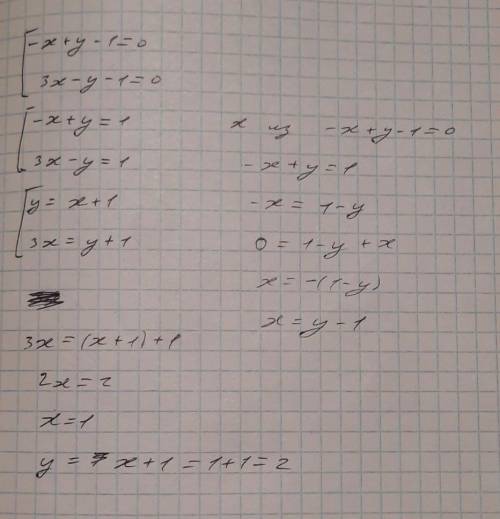 -x+y-1=0
3x-y-1=0
-x+y=1
3x-y=1
y= x+1
3x=y+1
3x=(x+1)+1
2x=2
x=1
y = x+1=1+1=2
x из -x+y-1=0
-x+y=1
-x= 1-y
0=1-y+x
x=-(1-y)
x=y-1